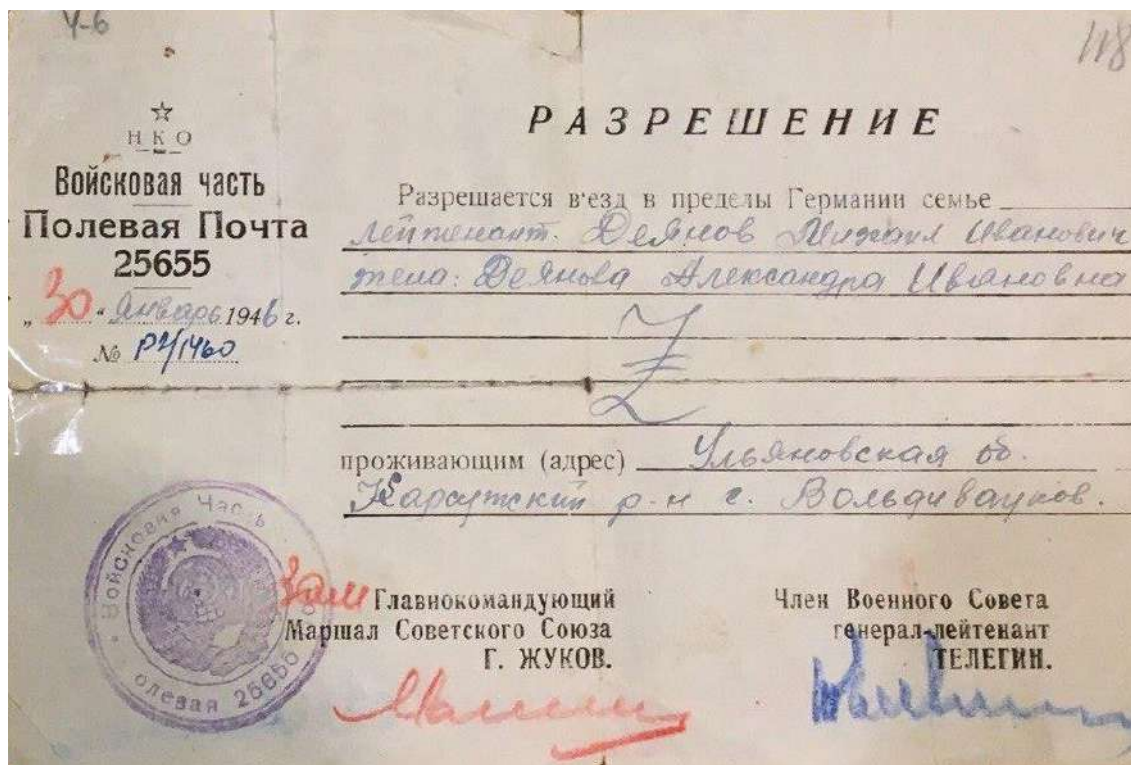 Ч-6
118
НКО
Войсковая часть
Полевая Почта
25655
„30“ Январь 1946 г.
№ РУ/1460
РАЗРЕШЕНИЕ
Разрешается в'езд в пределы Германии семье
лейтенант. Деянов Михаил Иванович
жена: Деянова Александра Ивановна
Z
проживающим (адрес) Ульяновская об.
р-н с.
Войсковая Часть
олевая 25655
Зам Главнокомандующий
Маршал Советского Союза
Г. ЖУКОВ.
Член Военного Совета
генерал-лейтенант
ТЕЛЕГИН.